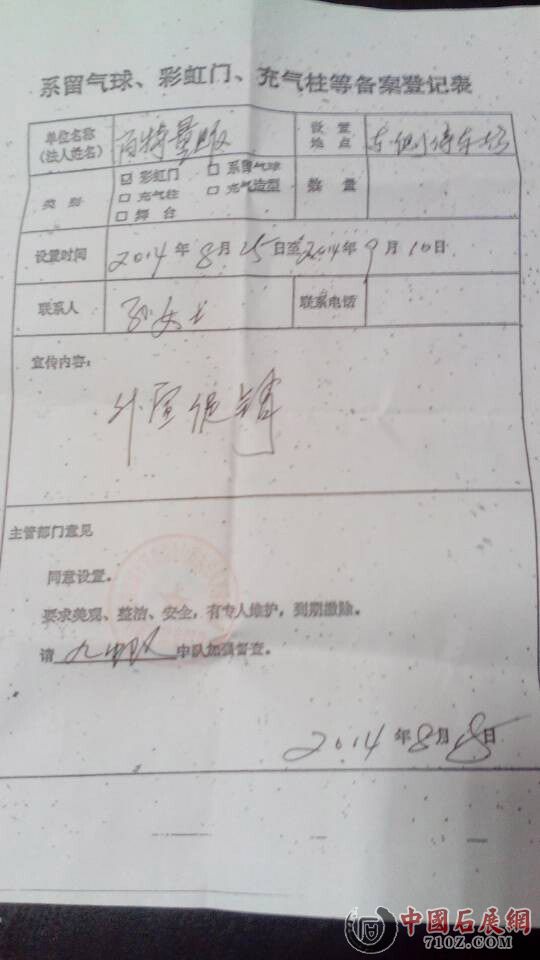 系留气球、彩虹门、充气柱等备案登记表
单位名称
(法人姓名)
百特量贩
设置
地点
东侧停车场
类别
☑ 彩虹门 □ 系留气球
□ 充气柱 □ 充气造型
□ 舞台
数量
设置时间
2014年8月25日至2014年9月10日
联系人
孙女士
联系电话
宣传内容:
外宣促销
主管部门意见
同意设置。
要求美观、整洁、安全,有专人维护,到期撤除。
请 九中队 中队加强督查。
2014年8月18日
中國石展網
71OZ.COM